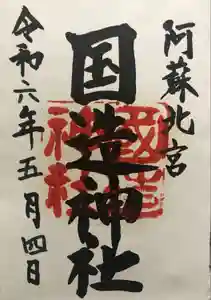 阿蘇北宮
国造神社
令和六年五月四日
國造神社